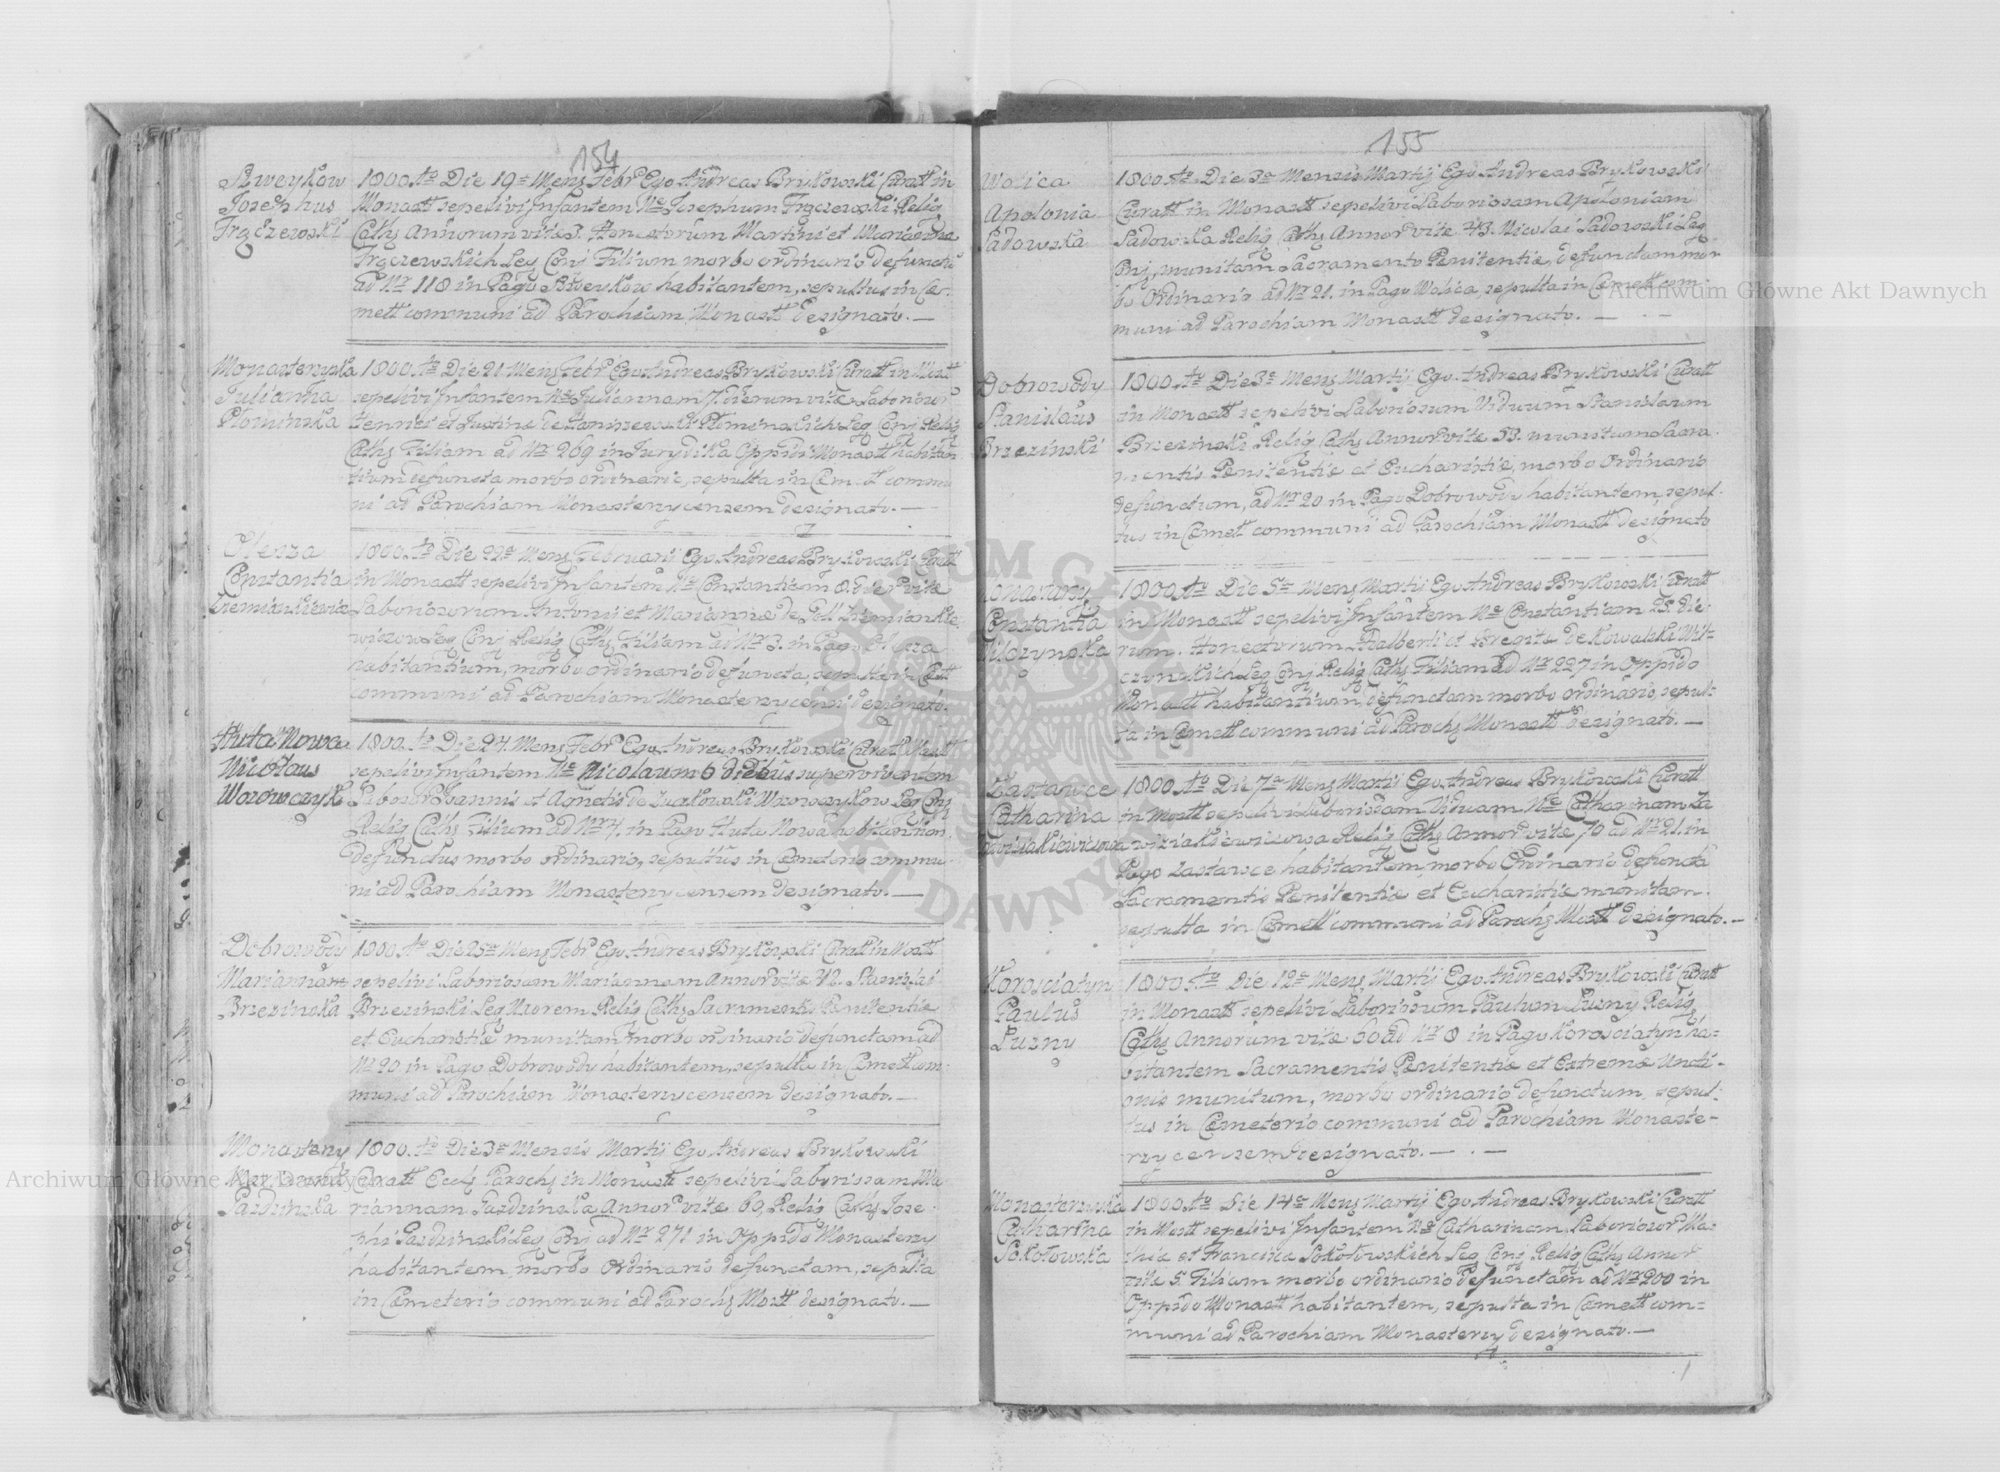 154
Szweykow
Josephus
Trączewski
1800.to Die 19a Mens Febr Ego Andreas Brykowski Curatt in
Monastt sepelivi Infantem Ne Josephum Trączewski Relig
Cath Annorum vite 3. Honestorum Martini et Marianna
Trączewskich Leg Conj Filium morbo ordinario defunctu
ad Nr 118 in Pago habitantem, sepultus in Cæ-
mett communi ad Parochiam Monastt designato. —
Monasterzyska
Julianna
Płominska
1800.to Die 21 Mens Febr Ego Andreas Brykowski Curatt in Monstt
sepelivi Infantem Ne Juliannam vite Laborior
et Justina de Płominskich Leg Conj Relig
Cath Filiam ad Nr 269 in Jurydika Oppidi Monastt habitan
tium defuncta morbo ordinario, sepulta in Cæmett commu
ni ad Parochiam Monasterzycensem designato. —
Olesza
Constantia
Ziemiankiewicz
1800.to Die 22a Mens Februarii Ego Andreas Brykowski Curatt
in Monastt sepelivi Infantem Ne Constantiam vite
Laboriosorum Antonij et Mariannæ de Ziemiankie-
wiczow Leg Conj Relig Cath Filiam ad Nr 3. in Pago Olesza
habitantium, morbo ordinario defuncta, sepulta in Cætt
communi ad Parochiam Monasterzycensi designato.
Huta Nowa
Nicolaus
Worowczyk
1800.to Die 24. Mens Febr Ego Andreas Brykowski Curatt Monstt
sepelivi Infantem Ne Nicolaum 6 diebus superviventem
Labor Joannis et Agnetis de Zuczkowski Worowczykow Leg Conj
Relig Cath Filium ad Nr 4, in Pago Huta Nowa habitantium
defunctus morbo ordinario, sepultus in Cæmeterio commu-
ni ad Parochiam Monasterzycensem designato. —
Dobrowody
Marianna
Brzezinska
1800.to Die 25a Mens Febr Ego Andreas Brykowski Curatt in Monstt
sepelivi Laboriosam Mariannam Annor vite 42. Stanislai
Brzezinski Leg Uxorem Relig Cath Sacramentis Pænitentiæ
et Eucharistiæ munitam morbo ordinario defunctam ad
Nr 20 in Pago Dobrowody habitantem, sepulta in Cæmett com-
muni ad Parochiam Monasterzycensem designato. —
Monasterzy
Pazdzinska
1800.to Die 3a Mensis Martij Ego Andreas Brykowski
Curatt Eccl Paroch in Monastt sepelivi Laboriosam Ma-
riannam Pazdzinska Annor vite 60, Relig Cath Jose-
phi Pazdzinski Leg Conj ad Nr 271 in Oppido Monasterzy
habitantem, morbo ordinario defunctam, sepulta
in Cæmeterio communi ad Paroch Monstt designato. —
155
Wolica
Apolonia
Sadowska
1800.to Die 3a Mensis Martij Ego Andreas Brykowski
Curatt in Monastt sepelivi Laboriosam Apoloniam
Sadowska Relig Cath Annor vite 43. Nicolai Sadowski Leg
Conj, munitam Sacramento Pænitentiæ, defunctam mor
bo Ordinario ad Nr 21. in Pago Wolica, sepulta in Cæmett com-
muni ad Parochiam Monastt designato. —
Dobrowody
Stanislaus
Brzezinski
1800.to Die 3a Mens Martij Ego Andreas Brykowski Curatt
in Monastt sepelivi Laboriosum Viduum Stanislaum
Brzezinski Relig Cath Annor vite 53. munitum Sacra-
mentis Pænitentiæ et Eucharistiæ, morbo Ordinario
defunctum, ad Nr 20 in Pago Dobrowody habitantem, sepul-
tus in Cæmett communi ad Parochiam Monastt designato
Monasterzy
Constantia
Wilczynska
1800.to Die 5a Mens Martij Ego Andreas Brykowski Curatt
in Monastt sepelivi Infantem Ne Constantiam 25. die-
rum. Honestorum Adalberti et Bregita de Kowalski Wil-
czynskich Leg Conj Relig Cath Filiam ad Nr 227 in Oppido
Monastt habitantium, defunctam morbo ordinario, sepul-
ta in Cæmett communi ad Paroch Monastt designati. —
Zastawce
Catharina
1800.to Die 7a Mens Martij Ego Andreas Brykowski Curatt
in Monstt sepelivi Laboriosam Viduam Ne Catharinam
Relig Cath Annor vite 70 ad Nr 21. in
Pago Zastawce habitantem, morbo Ordinario defuncta
Sacramentis Pænitentiæ et Eucharistiæ munitam.
sepulta in Cæmett communi ad Paroch Monstt designato. —
Korosciatyn
Paulus
Luzny
1800.to Die 12a Mens Martij Ego Andreas Brykowski Curatt
in Monastt sepelivi Laboriosum Paulum Luzny Relig
Cath Annorum vite 60 ad Nr 8 in Pago Korosciatyn ha-
bitantem Sacramentis Pænitentiæ et Extremæ Uncti-
onis munitum, morbo ordinario defunctum, sepul-
tus in Cæmeterio communi ad Parochiam Monaste-
rzycensem designato. — . —
Monasterzyska
Catharina
Sokołowska
1800.to Die 14a Mens Martij Ego Andreas Brykowski Curatt
in Monstt sepelivi Infantem Ne Catharinam, Laborior Ma-
thia et Francisca Sokołowskich Leg Conj Relig Cath Annor
vite 5. Filiam morbo ordinario defunctam ad Nr 200 in
Oppido Monastt habitantem, sepulta in Cæmett com-
muni ad Parochiam Monasterzy designato. —
Archiwum Główne Akt Dawnych
Archiwum Główne Akt Dawnych
ARCHIWUM GŁÓWNE
AKT DAWNYCH